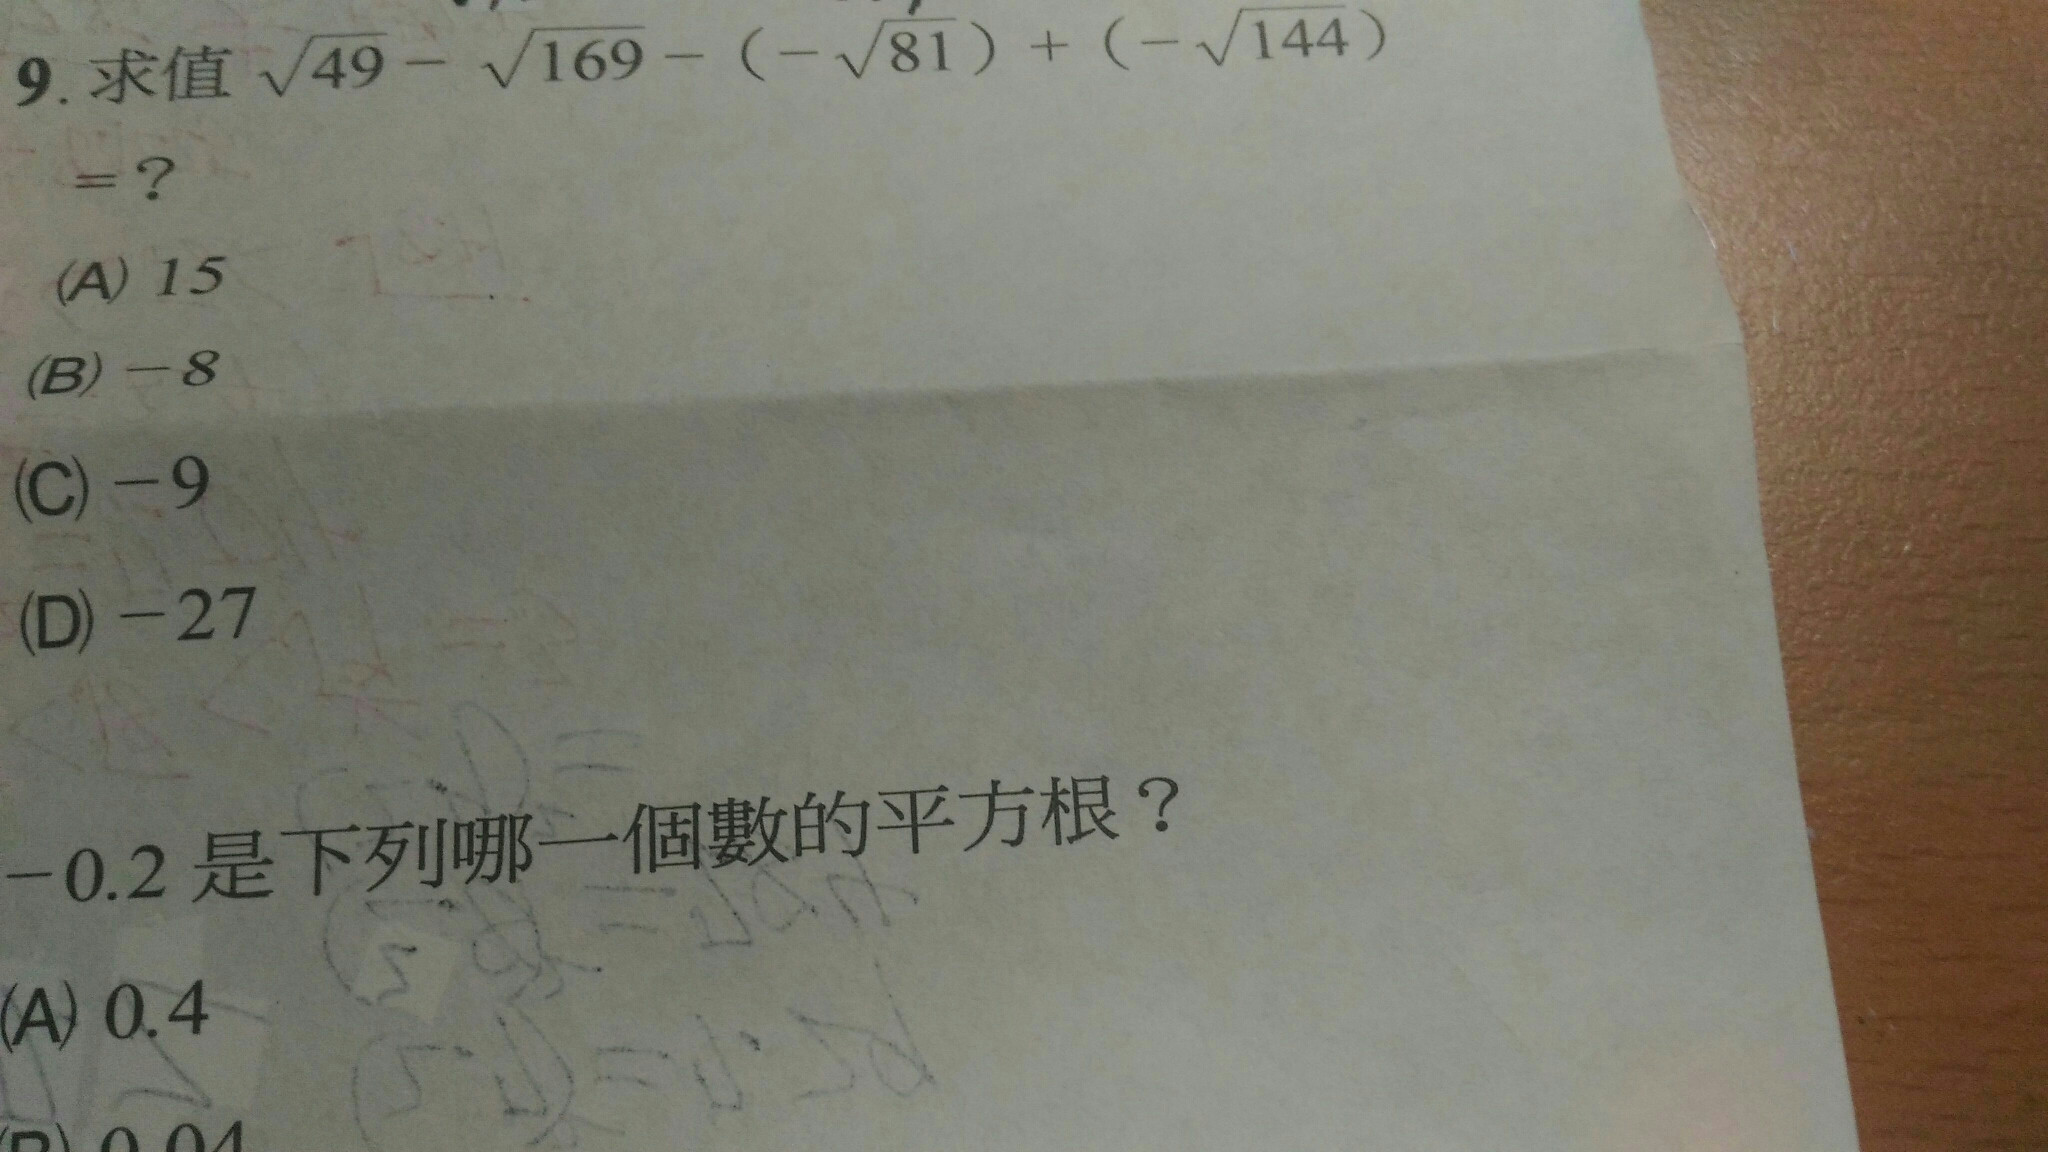 9. 求值 √49 − √169 − (−√81) + (−√144)
= ?
(A) 15
(B) −8
(C) −9
(D) −27
−0.2 是下列哪一個數的平方根？
(A) 0.4
(B) 0.04